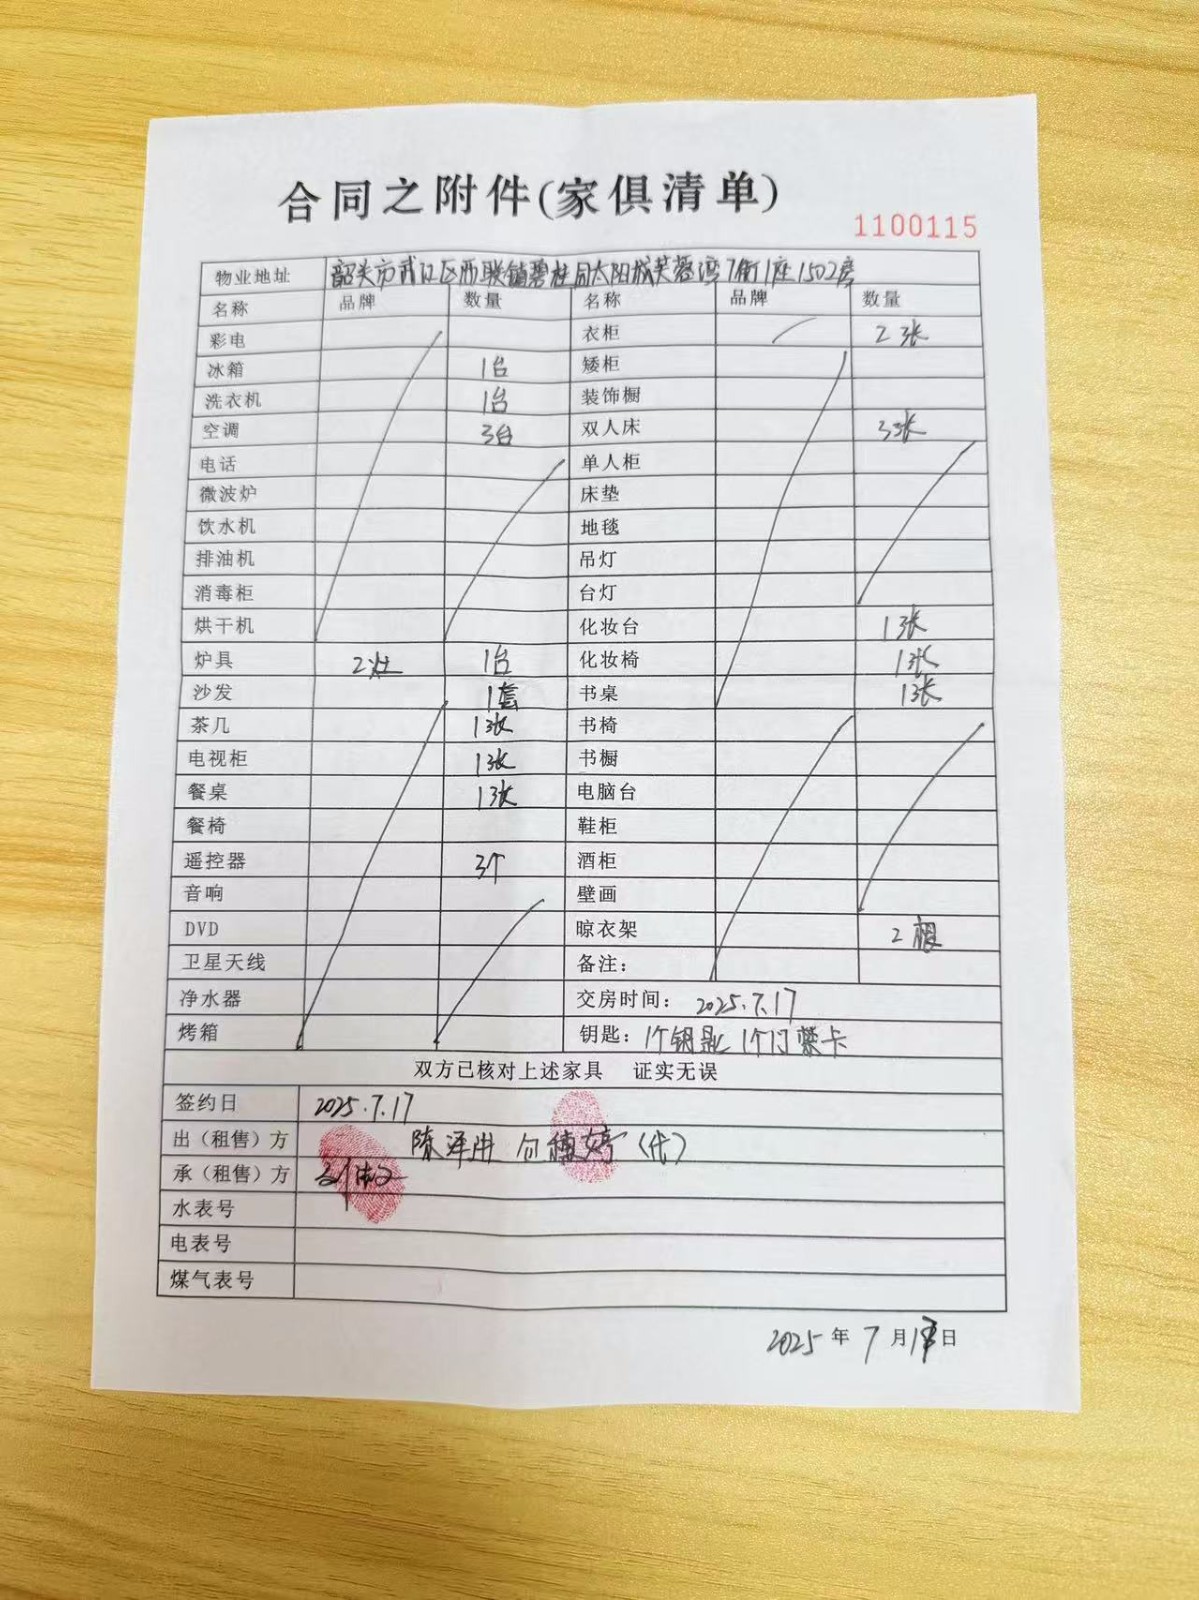 合同之附件(家俱清单)
1100115
物业地址 韶关市武江区西联镇碧桂园太阳城芙蓉湾7街1座1502房
名称 品牌 数量 名称 品牌 数量
彩电 衣柜 2张
冰箱 1台 矮柜
洗衣机 1台 装饰橱
空调 3台 双人床 3张
电话 单人柜
微波炉 床垫
饮水机 地毯
排油机 吊灯
消毒柜 台灯
烘干机 化妆台 1张
炉具 2灶 1台 化妆椅 1张
沙发 1套 书桌 1张
茶几 1张 书椅
电视柜 1张 书橱
餐桌 1张 电脑台
餐椅 鞋柜
遥控器 3个 酒柜
音响 壁画
DVD 晾衣架 2根
卫星天线 备注:
净水器 交房时间: 2025.7.17
烤箱 钥匙: 1个钥匙 1个门禁卡
双方已核对上述家具 证实无误
签约日 2025.7.17
出(租售)方 陈泽 (代)
承(租售)方
水表号
电表号
煤气表号
2025年7月 日